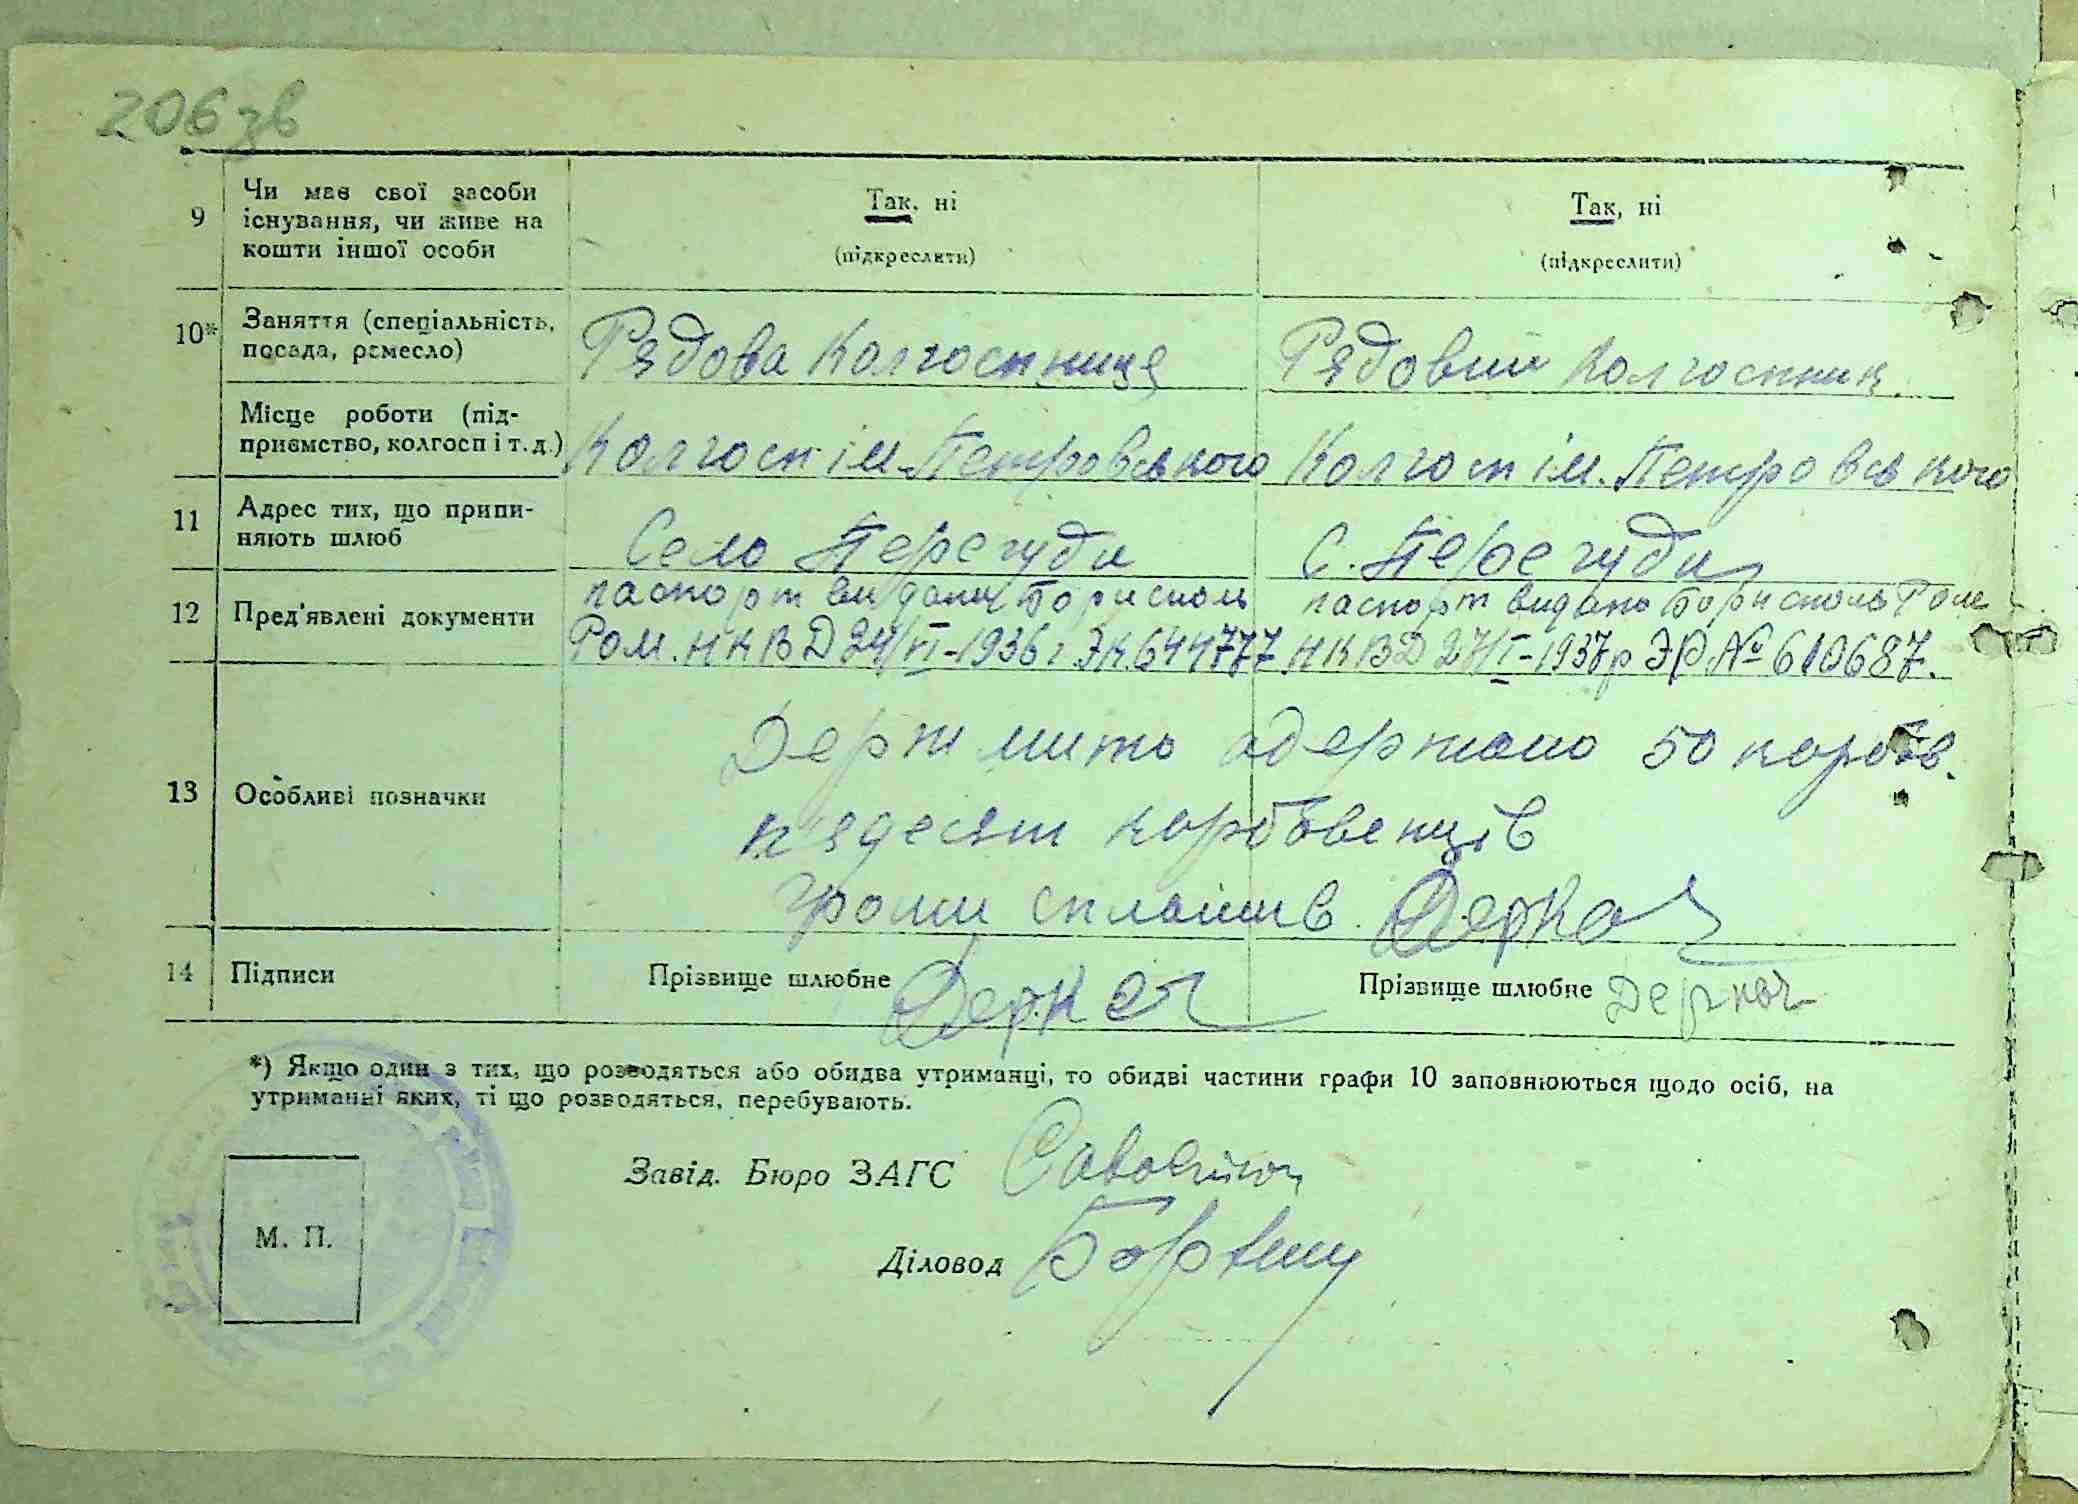 206 зв
9 Чи має свої засоби існування, чи живе на кошти іншої особи
Так, ні
(підкреслити)
Так, ні
(підкреслити)
10* Заняття (спеціальність, посада, ремесло)
Рядова Колгоспниця
Рядовий Колгоспник
Місце роботи (підприємство, колгосп і т.д.)
Колгосп ім. Петровського
Колгосп ім. Петровського
11 Адрес тих, що припиняють шлюб
Село Перегуди
С. Перегуди
12 Пред'явлені документи
паспорт видани Бориспольс
Ром. НКВД 24/VI-1936 г ЭК 644777
паспорт видано Борисполь Ром
НКВД 27/I-1937р ЭР № 610687.
13 Особливі позначки
Держ мито одержано 50 карбов.
п'ядесят карбованців
Гроши сплатив Деркач
14 Підписи
Прізвище шлюбне Деркач
Прізвище шлюбне Деркач
*) Якщо один з тих, що розводяться або обидва утриманці, то обидві частини графи 10 заповнюються щодо осіб, на
утриманні яких, ті що розводяться, перебувають.
Завід. Бюро ЗАГС
М. П.
Діловод